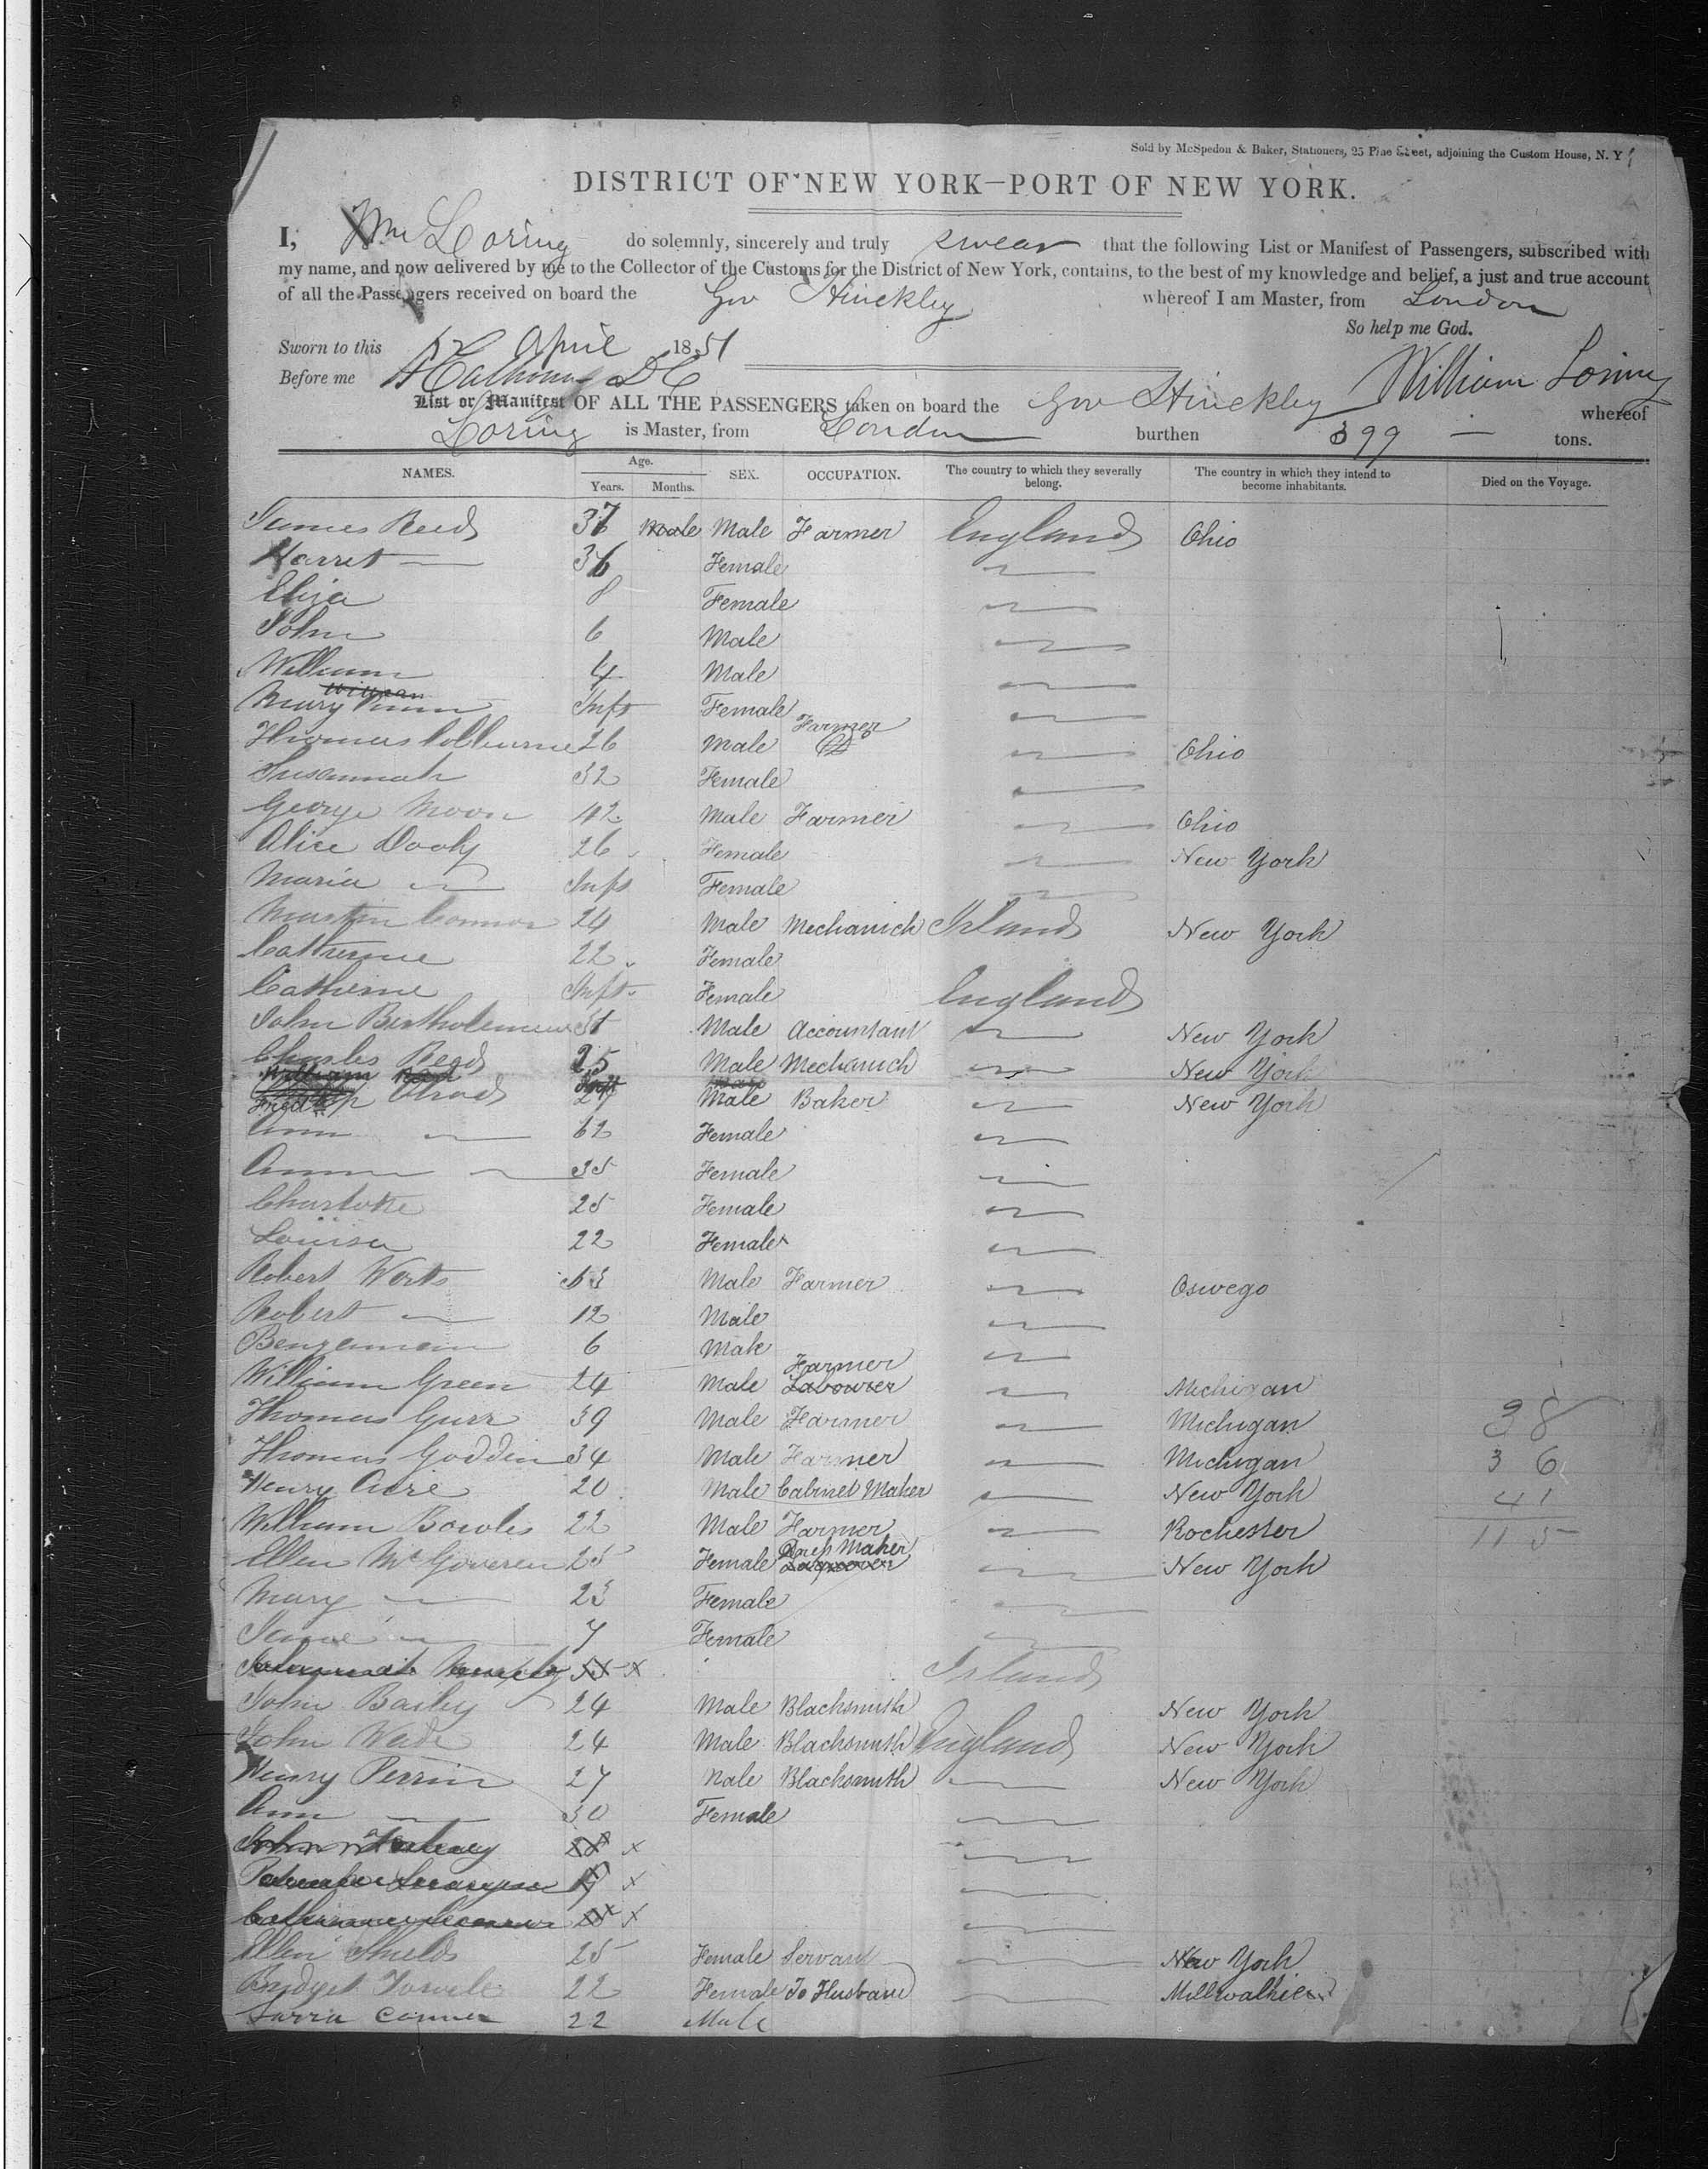 Sold by McSpedon & Baker, Stationers, 25 Pine Street, adjoining the Custom House, N. Y
DISTRICT OF NEW YORK—PORT OF NEW YORK.
I, Wm Loring do solemnly, sincerely and truly swear that the following List or Manifest of Passengers, subscribed with
my name, and now delivered by me to the Collector of the Customs for the District of New York, contains, to the best of my knowledge and belief, a just and true account
of all the Passengers received on board the Gov Hinckley whereof I am Master, from London
So help me God.
Sworn to this April 1851
Before me DC William Loring
List or Manifest OF ALL THE PASSENGERS taken on board the Gov Hinckley whereof
Loring is Master, from London burthen 399 — tons.
NAMES. Age. Years. Months. SEX. OCCUPATION. The country to which they severally belong. The country in which they intend to become inhabitants. Died on the Voyage.
James Reed 37 Male Male Farmer England Ohio
Harret — 36 Female
Eliza 8 Female
John 6 Male
William 4 Male
Mary Inft Female
Thomas 26 Male Farmer Ohio
Susannah 32 Female
George Moon 42 Male Farmer Ohio
Alice Dooly 26 Female New York
Maria Inft Female
Martin Connor 24 Male Mechanick Irland New York
Catherine 22 Female
Catherine Inft Female England
John Bertholemew 31 Male Accountant New York
Charles Read 25 Male Mechanick New York
Male Baker New York
Ann 62 Female
Anna 35 Female
Charlotte 25 Female
Louisa 22 Female
Robert Werts 53 Male Farmer Oswego
Robert 12 Male
Benjamin 6 Male
William Green 24 Male Farmer Labourer Michigan
Thomas Gurr 39 Male Farmer Michigan 38
Thomas Goddin 34 Male Farmer Michigan 36
Henry Acre 20 Male Cabinet Maker New York 41
William Bowles 22 Male Farmer Rochester 115
Ellen McGoveren 25 Female Dress Maker New York
Mary 23 Female
Jane 7 Female
Irland
John Baily 24 Male Blacksmith New York
John Wade 24 Male Blacksmith England New York
Henry Perrin 27 Male Blacksmith New York
Ann 30 Female
x
x
x
Ellen Shields 25 Female Servant New York
Bridget Towele 22 Female To Husband Millwalkie
Sarria Conner 22 Male